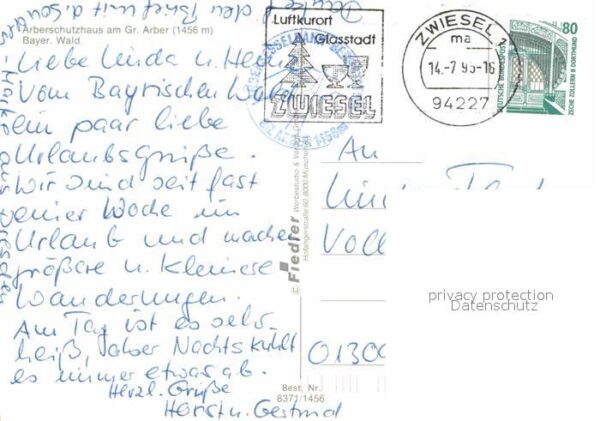 Arberschutzhaus am Gr. Arber (1456 m)
Bayer. Wald
Liebe Linda u. Heinz
Vom Bayrischen Wald
ein paar liebe
Urlaubsgrüße.
Wir sind seit fast
einer Woche im
Urlaub und machen
größere u. kleinere
Wanderungen.
Am Tag ist es sehr
heiß, aber Nachts kühlt
es immer etwas ab.
Herzl. Grüße
Horst u. Gertrud
Luftkurort
Glasstadt
ZWIESEL
ZWIESEL 1
ma
14.-7.95-16
94227
80
DEUTSCHE BUNDESPOST
ZECHE ZOLLERN II DORTMUND
© Fiedler
An
Voll
0130
privacy protection
Datenschutz
Best. Nr.
8371/1456